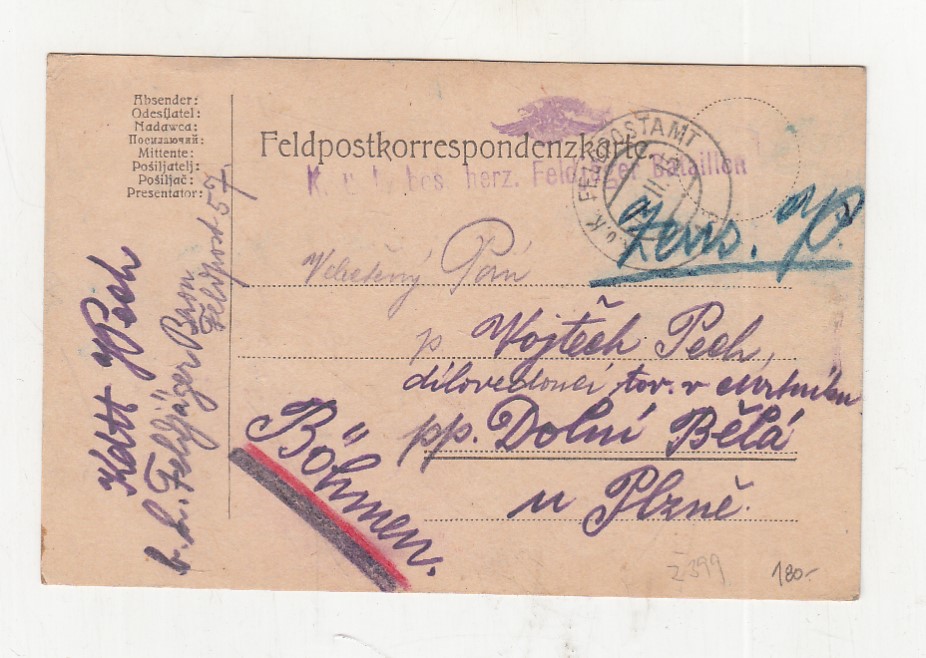 Absender:
Odesílatel:
Nadawca:
Посилаючий:
Mittente:
Pošiljatelj:
Pošiljač:
Presentator:
Feldpostkorrespondenzkarte.
K. u. k. bos. herz. Feldjäger Bataillon
K.u.K. FELDPOSTAMT
Zens.
Velectěný Pán
p Wojtěch Pech,
dílovedoucí tov. v
pp. Dolní Bělá
u Plzně.
Böhmen.
Kdtt Pech
b. h. Feldjäger Baon
Feldpost 57
2399
180.-